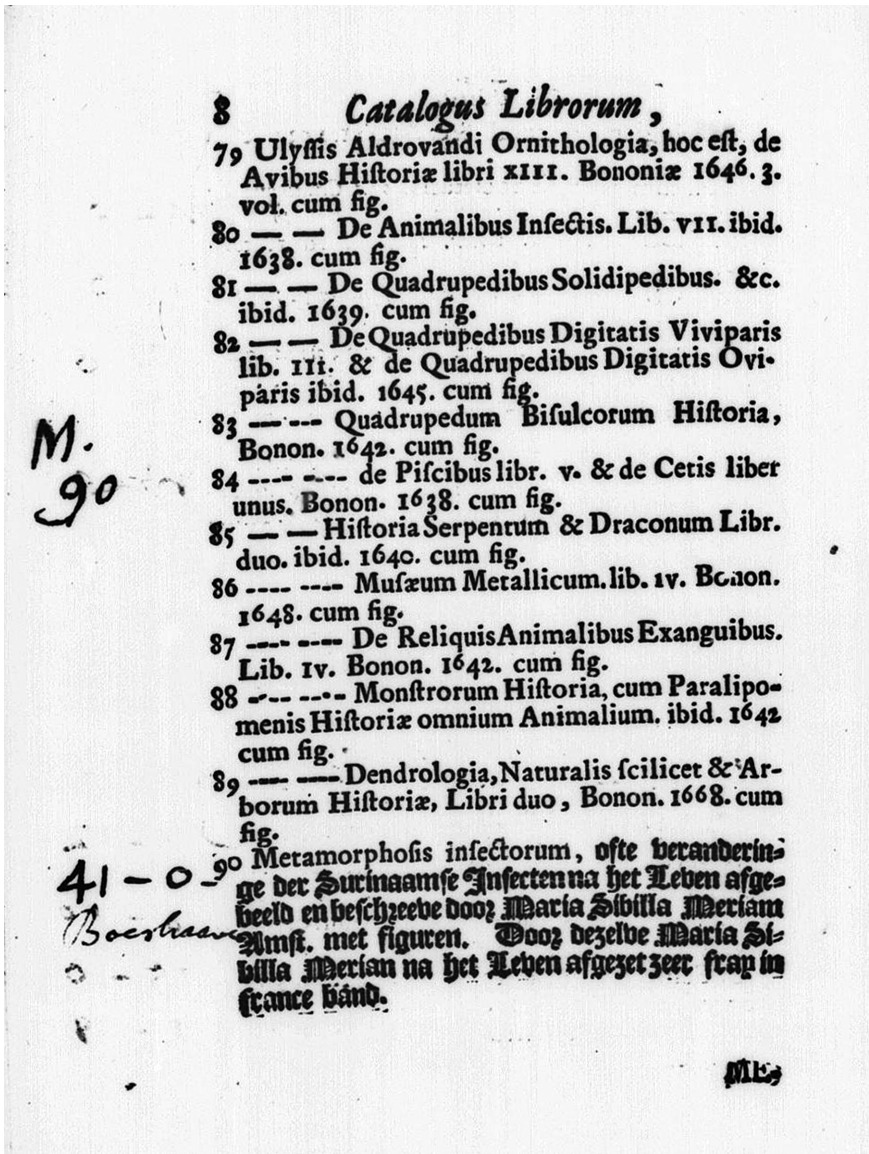 8 Catalogus Librorum,
79 Ulyſſis Aldrovandi Ornithologia, hoc eſt, de
Avibus Hiſtoriæ libri XIII. Bononiæ 1646. 3.
vol. cum fig.
80 — — De Animalibus Inſectis. Lib. VII. ibid.
1638. cum fig.
81 — — De Quadrupedibus Solidipedibus. &c.
ibid. 1639. cum fig.
82 — — De Quadrupedibus Digitatis Viviparis
lib. III. & de Quadrupedibus Digitatis Ovi-
paris ibid. 1645. cum fig.
83 — --- Quadrupedum Biſulcorum Hiſtoria,
Bonon. 1642. cum fig.
M.
90
84 ---- ---- de Piſcibus libr. V. & de Cetis liber
unus. Bonon. 1638. cum fig.
85 — — Hiſtoria Serpentum & Draconum Libr.
duo. ibid. 1640. cum fig.
86 ---- ---- Muſæum Metallicum. lib. IV. Bonon.
1648. cum fig.
87 ---- ---- De Reliquis Animalibus Exanguibus.
Lib. IV. Bonon. 1642. cum fig.
88 ---- ---- Monſtrorum Hiſtoria, cum Paralipo-
menis Hiſtoriæ omnium Animalium. ibid. 1642
cum fig.
89 ---- ---- Dendrologia, Naturalis ſcilicet & Ar-
borum Hiſtoriæ, Libri duo, Bonon. 1668. cum
fig.
90 Metamorphoſis inſectorum, ofte veranderin-
41 - 0 -
ge der Surinaamſe Inſecten na het Leven afge-
beeld en beſchreeve door Maria Sibilla Meriam
Boerhaave
Amſt. met figuren. Door dezelve Maria Si-
billa Merian na het Leven afgezet zeer fray in
france band.
ME-